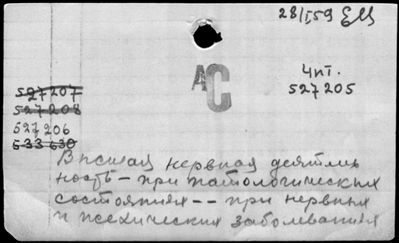 28/I 59
АС
Чит.
527205
527207
527208
527206
533630
Высшая нервная деятель
ность – при патологических
состояниях -- при нервных
и психических заболеваниях